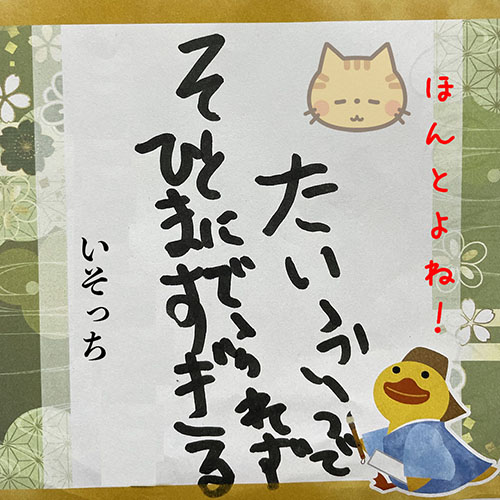 ほんとよね!
たいふうで
そとにでられず
ひますぎる
いそっち